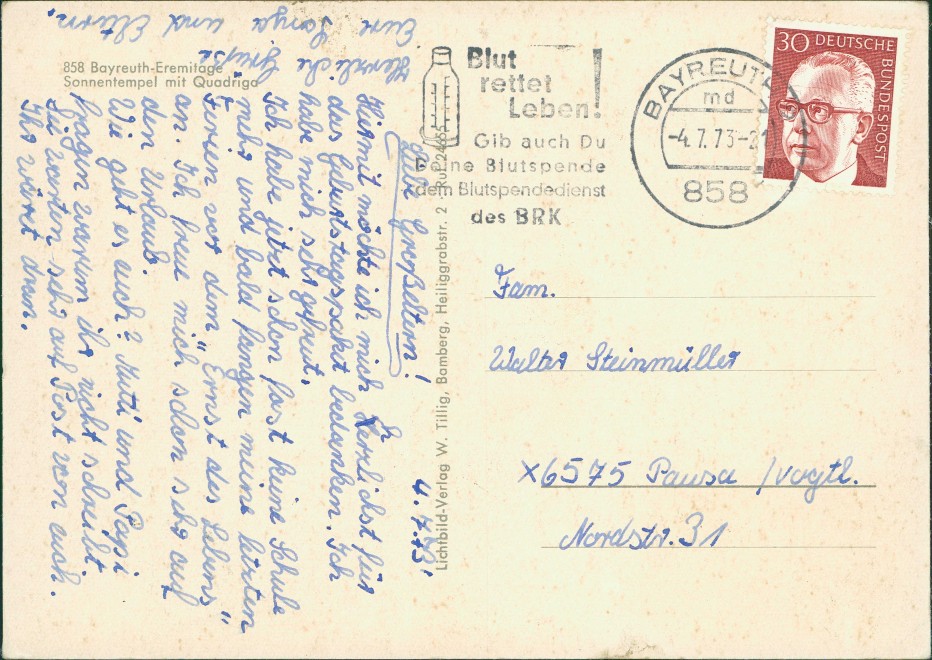 858 Bayreuth-Eremitage
Sonnentempel mit Quadriga
4.7.73!
Liebe Großeltern!
Hiermit möchte ich mich herzlichst für
das Geburtstagspaket bedanken. Ich
habe mich sehr gefreut.
Ich habe jetzt schon fast keine Schule
mehr und bald fangen meine letzten
Ferien vor dem "Ernst des Lebens"
an. Ich freu mich schon sehr auf
den Urlaub.
Wie geht es euch? Mutti und Papi
fragen warum ihr nicht schreibt.
Sie warten sehr auf Post von euch.
Ihr wärt dran.
Herzliche Grüße
Eure Tanja und Eltern.
Lichtbild-Verlag W. Tillig, Bamberg, Heiliggrabstr. 2 · Ruf 24655
Blut
rettet
Leben!
Gib auch Du
Deine Blutspende
dem Blutspendedienst
des BRK
BAYREUTH
md
-4.7.73-21
858
30 DEUTSCHE BUNDESPOST
Fam.
Walter Steinmüller
X6575 Pausa /Vogtl.
Nordstr. 31